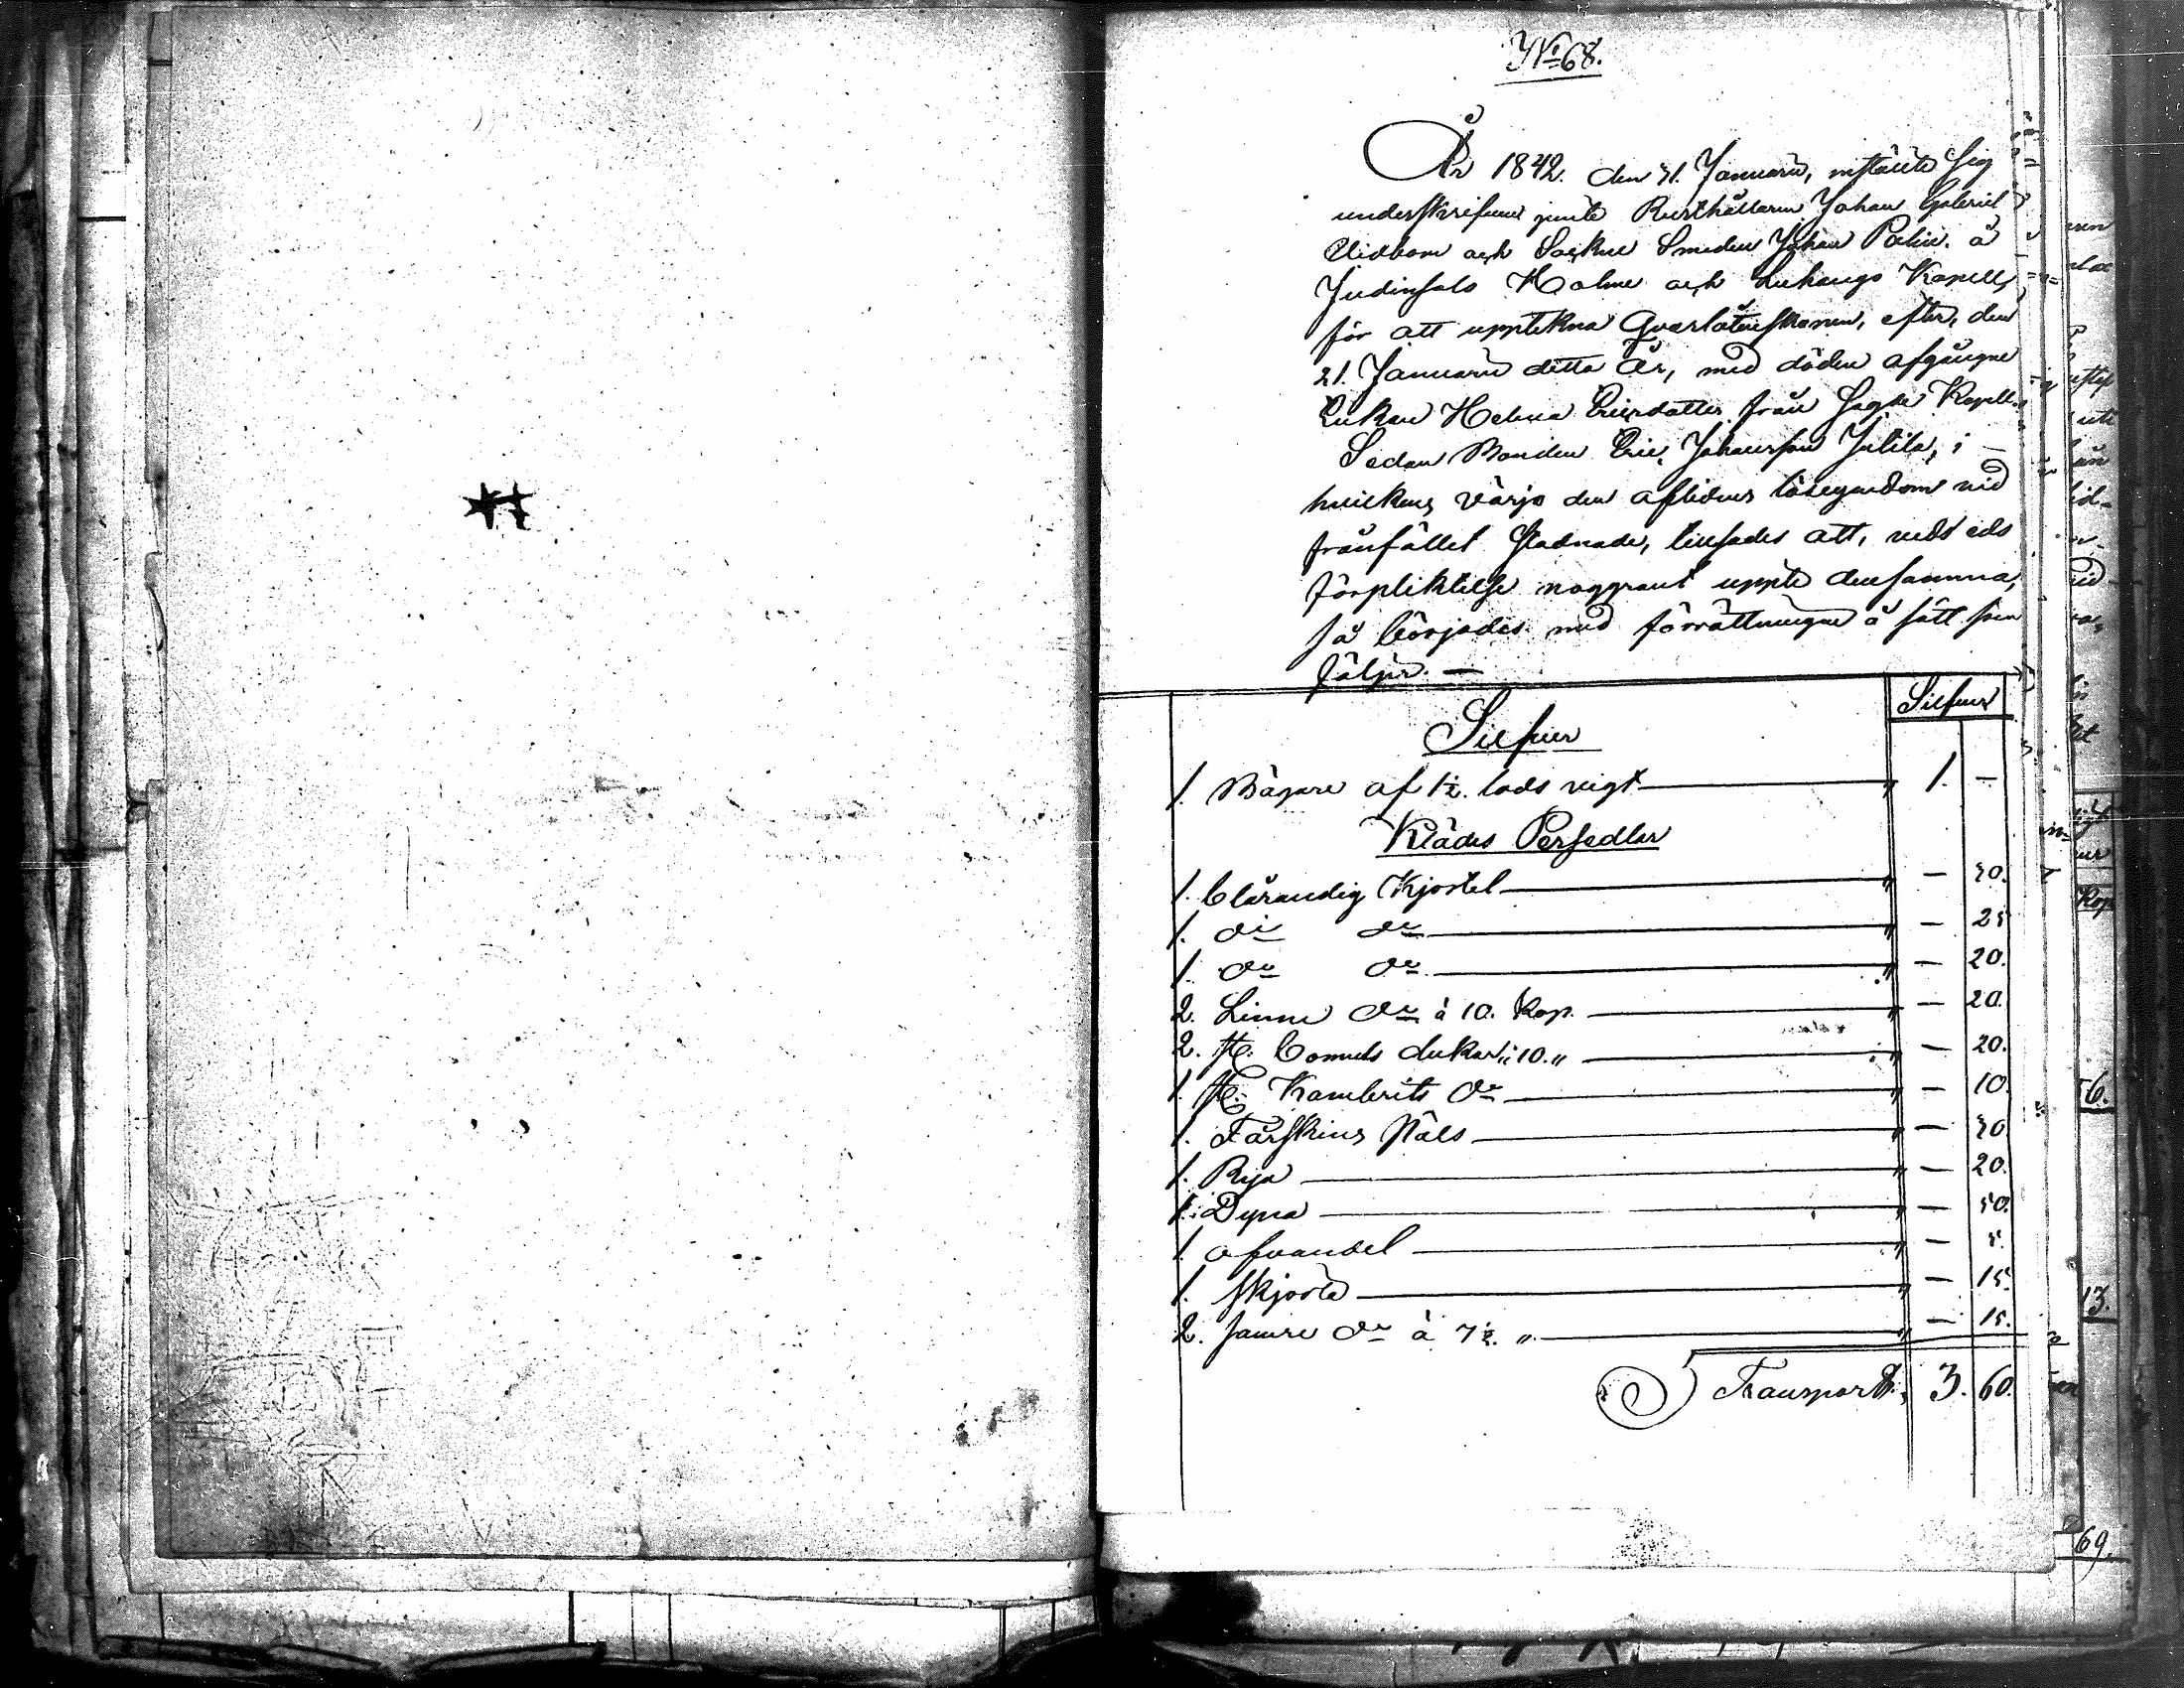 No 68.
År 1842. den 31. Januarii, instälte sig
underskrifven jemte Rusthållaren Johan Gabriel
Widbom och Sockne Smeden Johan Palin. å
Holme och Luhango Kapell,
för att upptekna Qvarlåtenskapen, efter, den
21. Januarii detta År, med döden afgångne
Enkan Helena Ericsdotter från Kapell.
Sedan Bonden Eric Johansson Jutila, i
hvilkens värjo den aflidnes lösegendom vid
frånfället stadnade, tillsades att, vid eds
förpliktelse noggrant uppte densamma,
så börjades med förrättningen å sätt som
följer. —
Silfver
Silfver
1. Bägare af 1½. lods vigt " 1. —
Klädes Persedlar
1. blårandig Kjortel " — 30.
1. do do " — 25
1. do do " — 20.
2. Linne do à 10. kop. " — 20.
2. st. Bomuls dukar à 10. " " — 20.
1. st. Kambrits do " — 10.
1. Fårskins Päls " — 30
1. Rya " — 20.
1. Dyna " — 50.
1. Örnvandel " — 5.
1. skjorta " — 15.
2. sämre do à 7½. " " — 15.
Transport 3. 60.